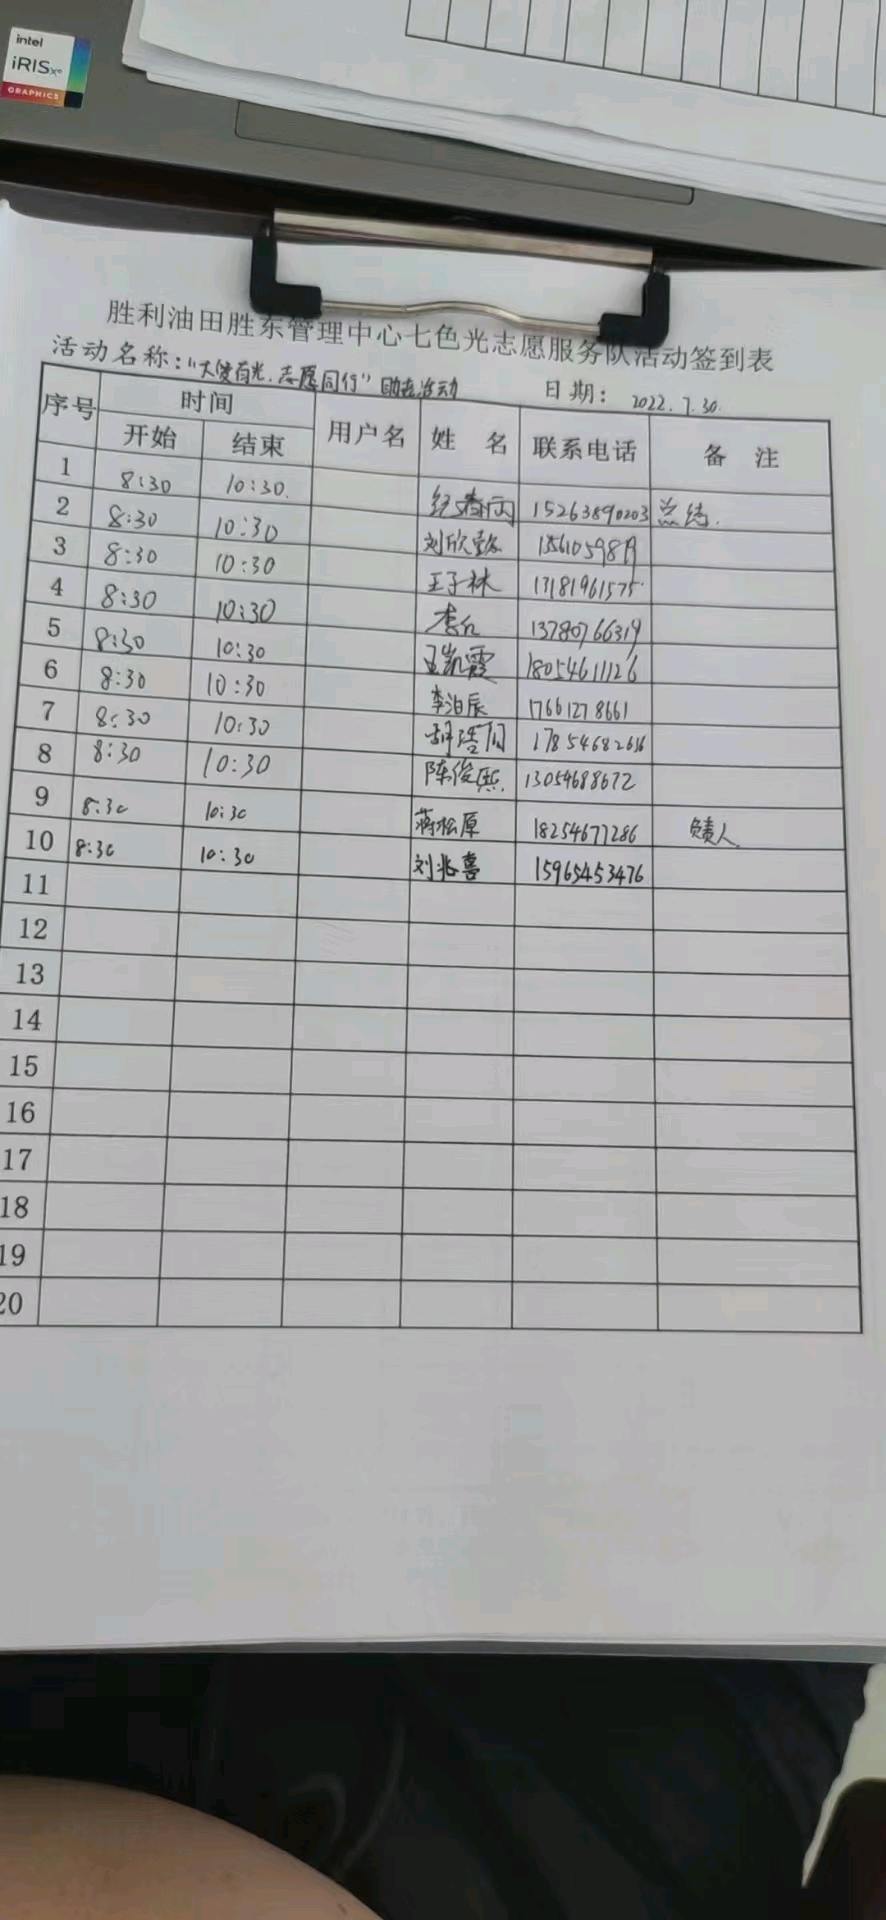 intel
iRIS Xe
GRAPHICS
胜利油田胜东管理中心七色光志愿服务队活动签到表
活动名称：“大爱有光,志愿同行”助老活动 日期： 2022.7.30.
序号 时间 用户名 姓 名 联系电话 备 注
开始 结束
1 8:30 10:30. 纪春雨 15263890203 总结.
2 8:30 10:30 刘欣
3 8:30 10:30 王子林 17181961575
4 8:30 10:30 13780766319
5 8:30 10:30 王凯霞 18054611126
6 8:30 10:30 李泊辰 17661278661
7 8:30 10:30 17854682636
8 8:30 10:30 陈俊熙 13054688672
9 8:30 10:30 蒋松原 18254677286 负责人
10 8:30 10:30 刘兆喜 15965453476
11
12
13
14
15
16
17
18
19
20